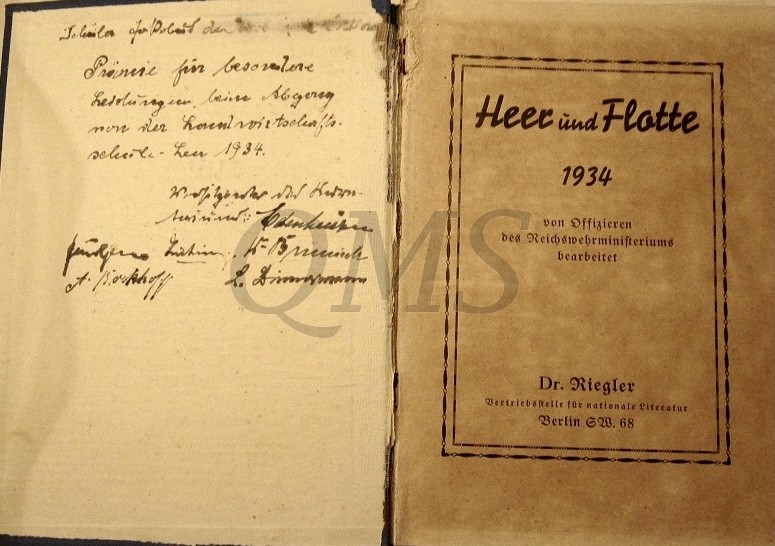 Schüler
Prämie für besondere
Leistungen beim Abgang
von der Landwirtschafts-
schule Leer 1934.
Vorsitzender des Kura-
toriums:
A. Bockhoff
Heer und Flotte
1934
von Offizieren
des Reichswehrministeriums
bearbeitet
Dr. Riegler
Vertriebsstelle für nationale Literatur
Berlin SW. 68
QMS